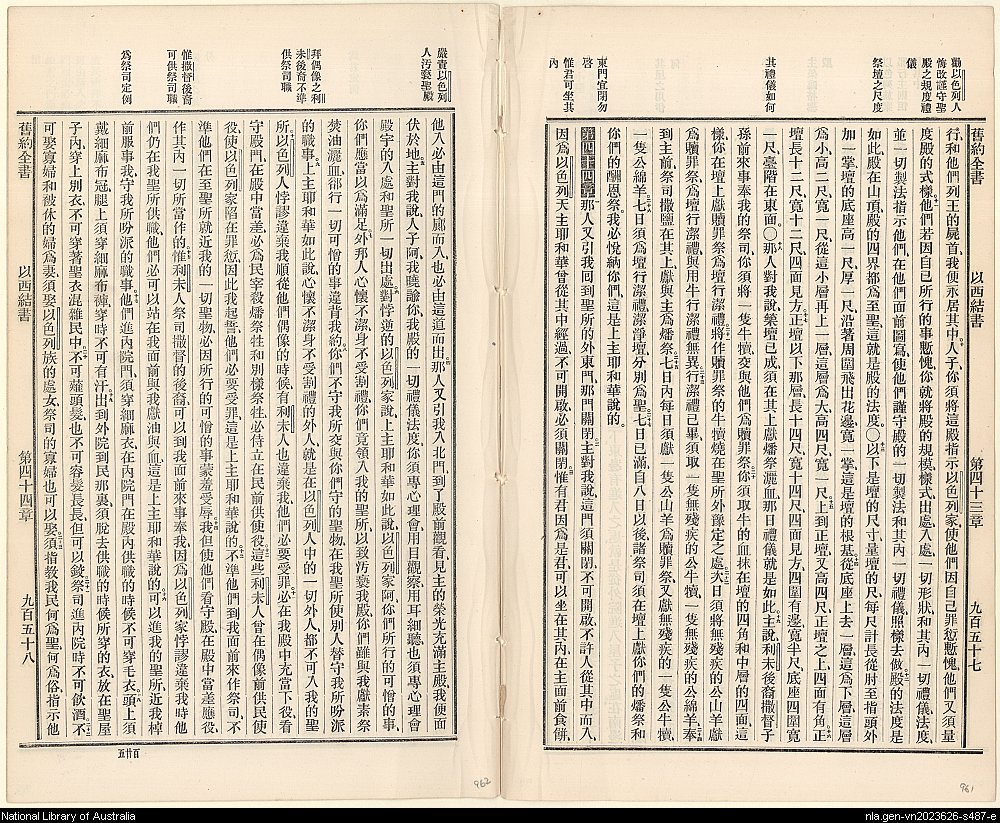 勸以色列人
悔改謹守聖
殿之規度禮
儀
祭壇之尺度
其禮儀如何
東門宜閉勿
啓
惟君可坐其
內
舊約全書
以西結書
第四十三章
九百五十七
行、和他們列王的屍首、我便永居其中、人子、你須將這殿指示以色列家、使他們因自己罪愆慙愧、他們又須量
度殿的式樣、他們若因自己所行的事慙愧、你就將殿的規模、樣式、出處、入處、一切形狀、和其內一切禮儀法度、
並一切製法指示他們、在他們面前圖寫、使他們謹守殿的一切製法、和其內一切禮儀、照樣去做、殿的法度是
如此、殿在山頂、殿的四界都為至聖、這就是殿的法度、〇以下是壇的尺寸、量壇的尺、每尺計長從肘至指頭、外
加一掌、壇的底座高一尺、厚一尺、沿著周圍飛出花邊、寬一掌、這是壇的根基、從底座上去一層、這為下層、這層
為小、高二尺、寬一尺、從這小層再上一層、這層為大、高四尺、寬一尺、上到正壇、又高四尺、正壇之上、四面有角、正
壇長十二尺、寬十二尺、四面見方、正壇以下那層、長十四尺、寬十四尺、四面見方、四圍有邊、寬半尺、底座四圍寬
一尺、臺階在東面、〇那人對我說、築壇已成、須在其上獻燔祭灑血、那日禮儀就是如此、主說、利未後裔撒督子
孫、前來事奉我的祭司、你須將一隻牛犢交與他們為贖罪祭、你須取牛的血、抹在壇的四角和中層的四面、這
樣、你在壇上獻贖罪祭、為壇行潔禮、將作贖罪祭的牛犢燒在聖所外豫定之處、次日須將無殘疾的公山羊獻
為贖罪祭、為壇行潔禮、與用牛行潔禮無異、行潔禮已畢、須取一隻無殘疾的公犢、一隻無殘疾的公綿羊、奉
到主前、祭司撒鹽在其上、獻與主為燔祭、七日內每日須獻一隻公山羊為贖罪祭、又獻無殘疾的一隻公牛犢、
一隻公綿羊、七日須為壇行潔禮、潔淨壇、分別為聖、七日已滿、自八日以後、諸祭司須在壇上獻你們的燔祭和
你們的酬恩祭、我必悅納你們、這是上主耶和華說的、
第四十四章那人又引我回到聖所的外東門、那門關閉、主對我說、這門須關閉、不可開啟、不許人從其中而入、
因為以色列天主耶和華曾從其中經過、不可開啟、必須關閉、惟有君、因為是君、可以坐在其內、在主面前食餅、
嚴責以色列
人汚褻聖殿
拜偶像之利
未後裔不準
供祭司職
惟撒督後裔
可供祭司職
為祭司定例
他入必由這門的廊而入、也必由這道而出、那人又引我入北門、到了殿前觀看、見主的榮光充滿主殿、我便面
伏於地、主對我說、人子阿、我曉諭你我殿的一切禮儀法度、你須專心理會、用目觀察、用耳細聽、也須專心理會
殿宇的入處和聖所一切出處、對悖逆的以色列家說、上主耶和華如此說、以色列家阿、你們所行的可憎的事、
你們應當以為滿足、外邦人心懷不潔、身不受割禮、你們竟領入我的聖所、以致汚褻我殿、你們雖與我獻素祭、
焚油灑血、卻行一切可憎的事、違背我約、你們不守我所交與你們守的聖物、在我聖所使別人替守我所吩派
的職事、上主耶和華如此說、心懷不潔身不受割禮的外人、就是在以色列人中的一切外人、都不可入我的聖
所、以色列人悖謬違棄我、順從他們偶像的時候、有利未人也違棄我、他們必要受罪、必在我殿中充當下役、看
守殿門、在殿中當差、必為民宰殺燔祭牲和別樣祭牲、必侍立在民前供使役、這些利未人曾在偶像前供民使
役、使以色列家陷在罪愆、因此我起誓、他們必要受罪、這是上主耶和華說的、不準他們到我面前來作祭司、不
準他們在至聖所就近我的一切聖物、必因所行的可憎的事蒙羞受辱、我但使他們看守殿、在殿中當差應役、
作其內一切所當作的、惟利未人祭司撒督的後裔、可以到我面前來事奉我、因為以色列家悖謬違棄我時、他
們仍在我聖所供職、他們必可以站在我面前、與我獻油與血、這是上主耶和華說的、可以進我的聖所、近我棹
前服事我、守我所吩派的職事、他們進內院門、須穿細麻衣、在內院門在殿內供職的時候、不可穿毛衣、頭上須
戴細麻布冠、腿上須穿細麻布褲、穿時不可有汗、出到外院到民那裏、須脫去供職的時候所穿的衣、放在聖屋
子內、穿上別衣、不可穿著聖衣混雜民中、不可薙頭髮、也不可容髮長長、但可以鉸、祭司進內院時、不可飲酒、不
可娶寡婦和被休的婦為妻、須娶以色列族的處女、祭司的寡婦也可以娶、須指教我民何為聖、何為俗、指示他
舊約全書
以西結書
第四十四章
九百五十八
五廿百
962
961
National Library of Australia
nla.gen-vn2023626-s487-e